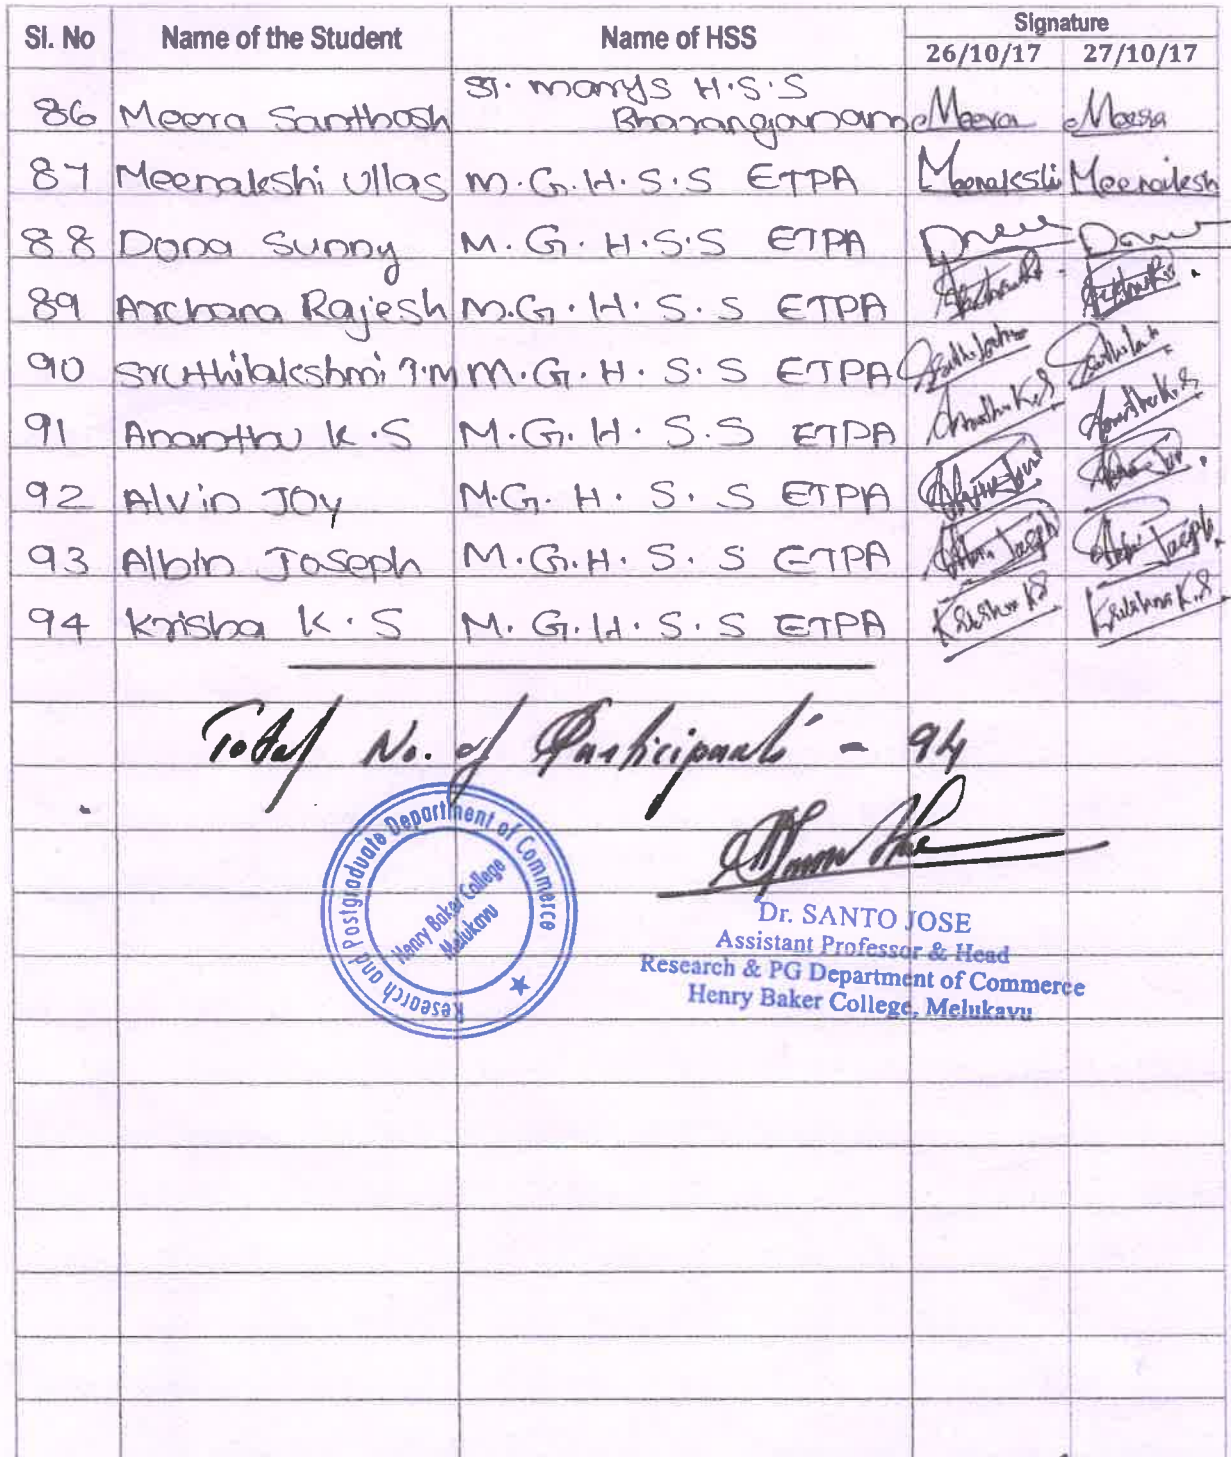 Sl. No Name of the Student Name of HSS Signature
26/10/17 27/10/17
86 Meera Santhosh St. marys H.S.S Bharanganam Meera Meera
87 Meenakshi Ullas M.G.H.S.S ETPA Meenakshi Meenakshi
88 Dona Sunny M.G.H.S.S ETPA Dona
89 Archana Rajesh M.G.H.S.S ETPA
90 Sruthilakshmi T.M M.G.H.S.S ETPA
91 Ananthu K.S M.G.H.S.S ETPA Ananthu K.S Ananthu K.S
92 Alvin Joy M.G.H.S.S ETPA
93 Albin Joseph M.G.H.S.S ETPA Albin Joseph Albin Joseph
94 Krisha K.S M.G.H.S.S ETPA Krishna K.S Krishna K.S
Total No. of Participants - 94
Research and Postgraduate Department of Commerce
Henry Baker College
Melukavu
Dr. SANTO JOSE
Assistant Professor & Head
Research & PG Department of Commerce
Henry Baker College, Melukavu